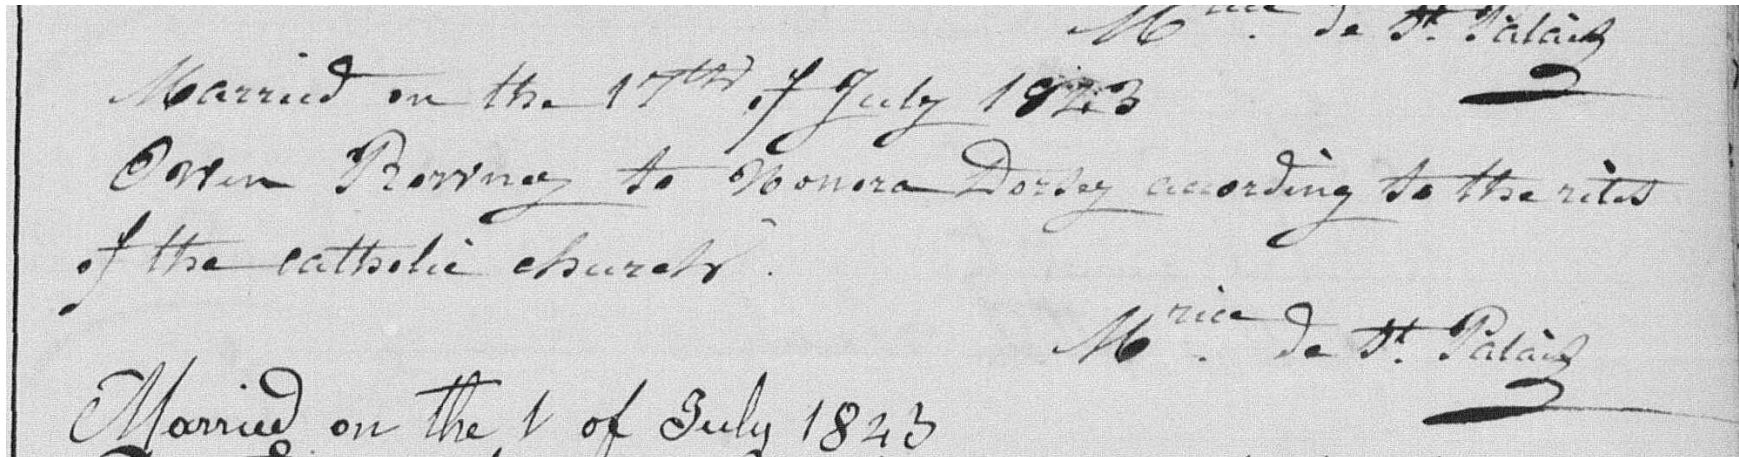 M^rice. de St. Palais
Married on the 17th of July 1843
Owen Rowney to Honora Dorsey acording to the rites
of the catholic church.
M^rice. de St. Palais
Married on the 1 of July 1843